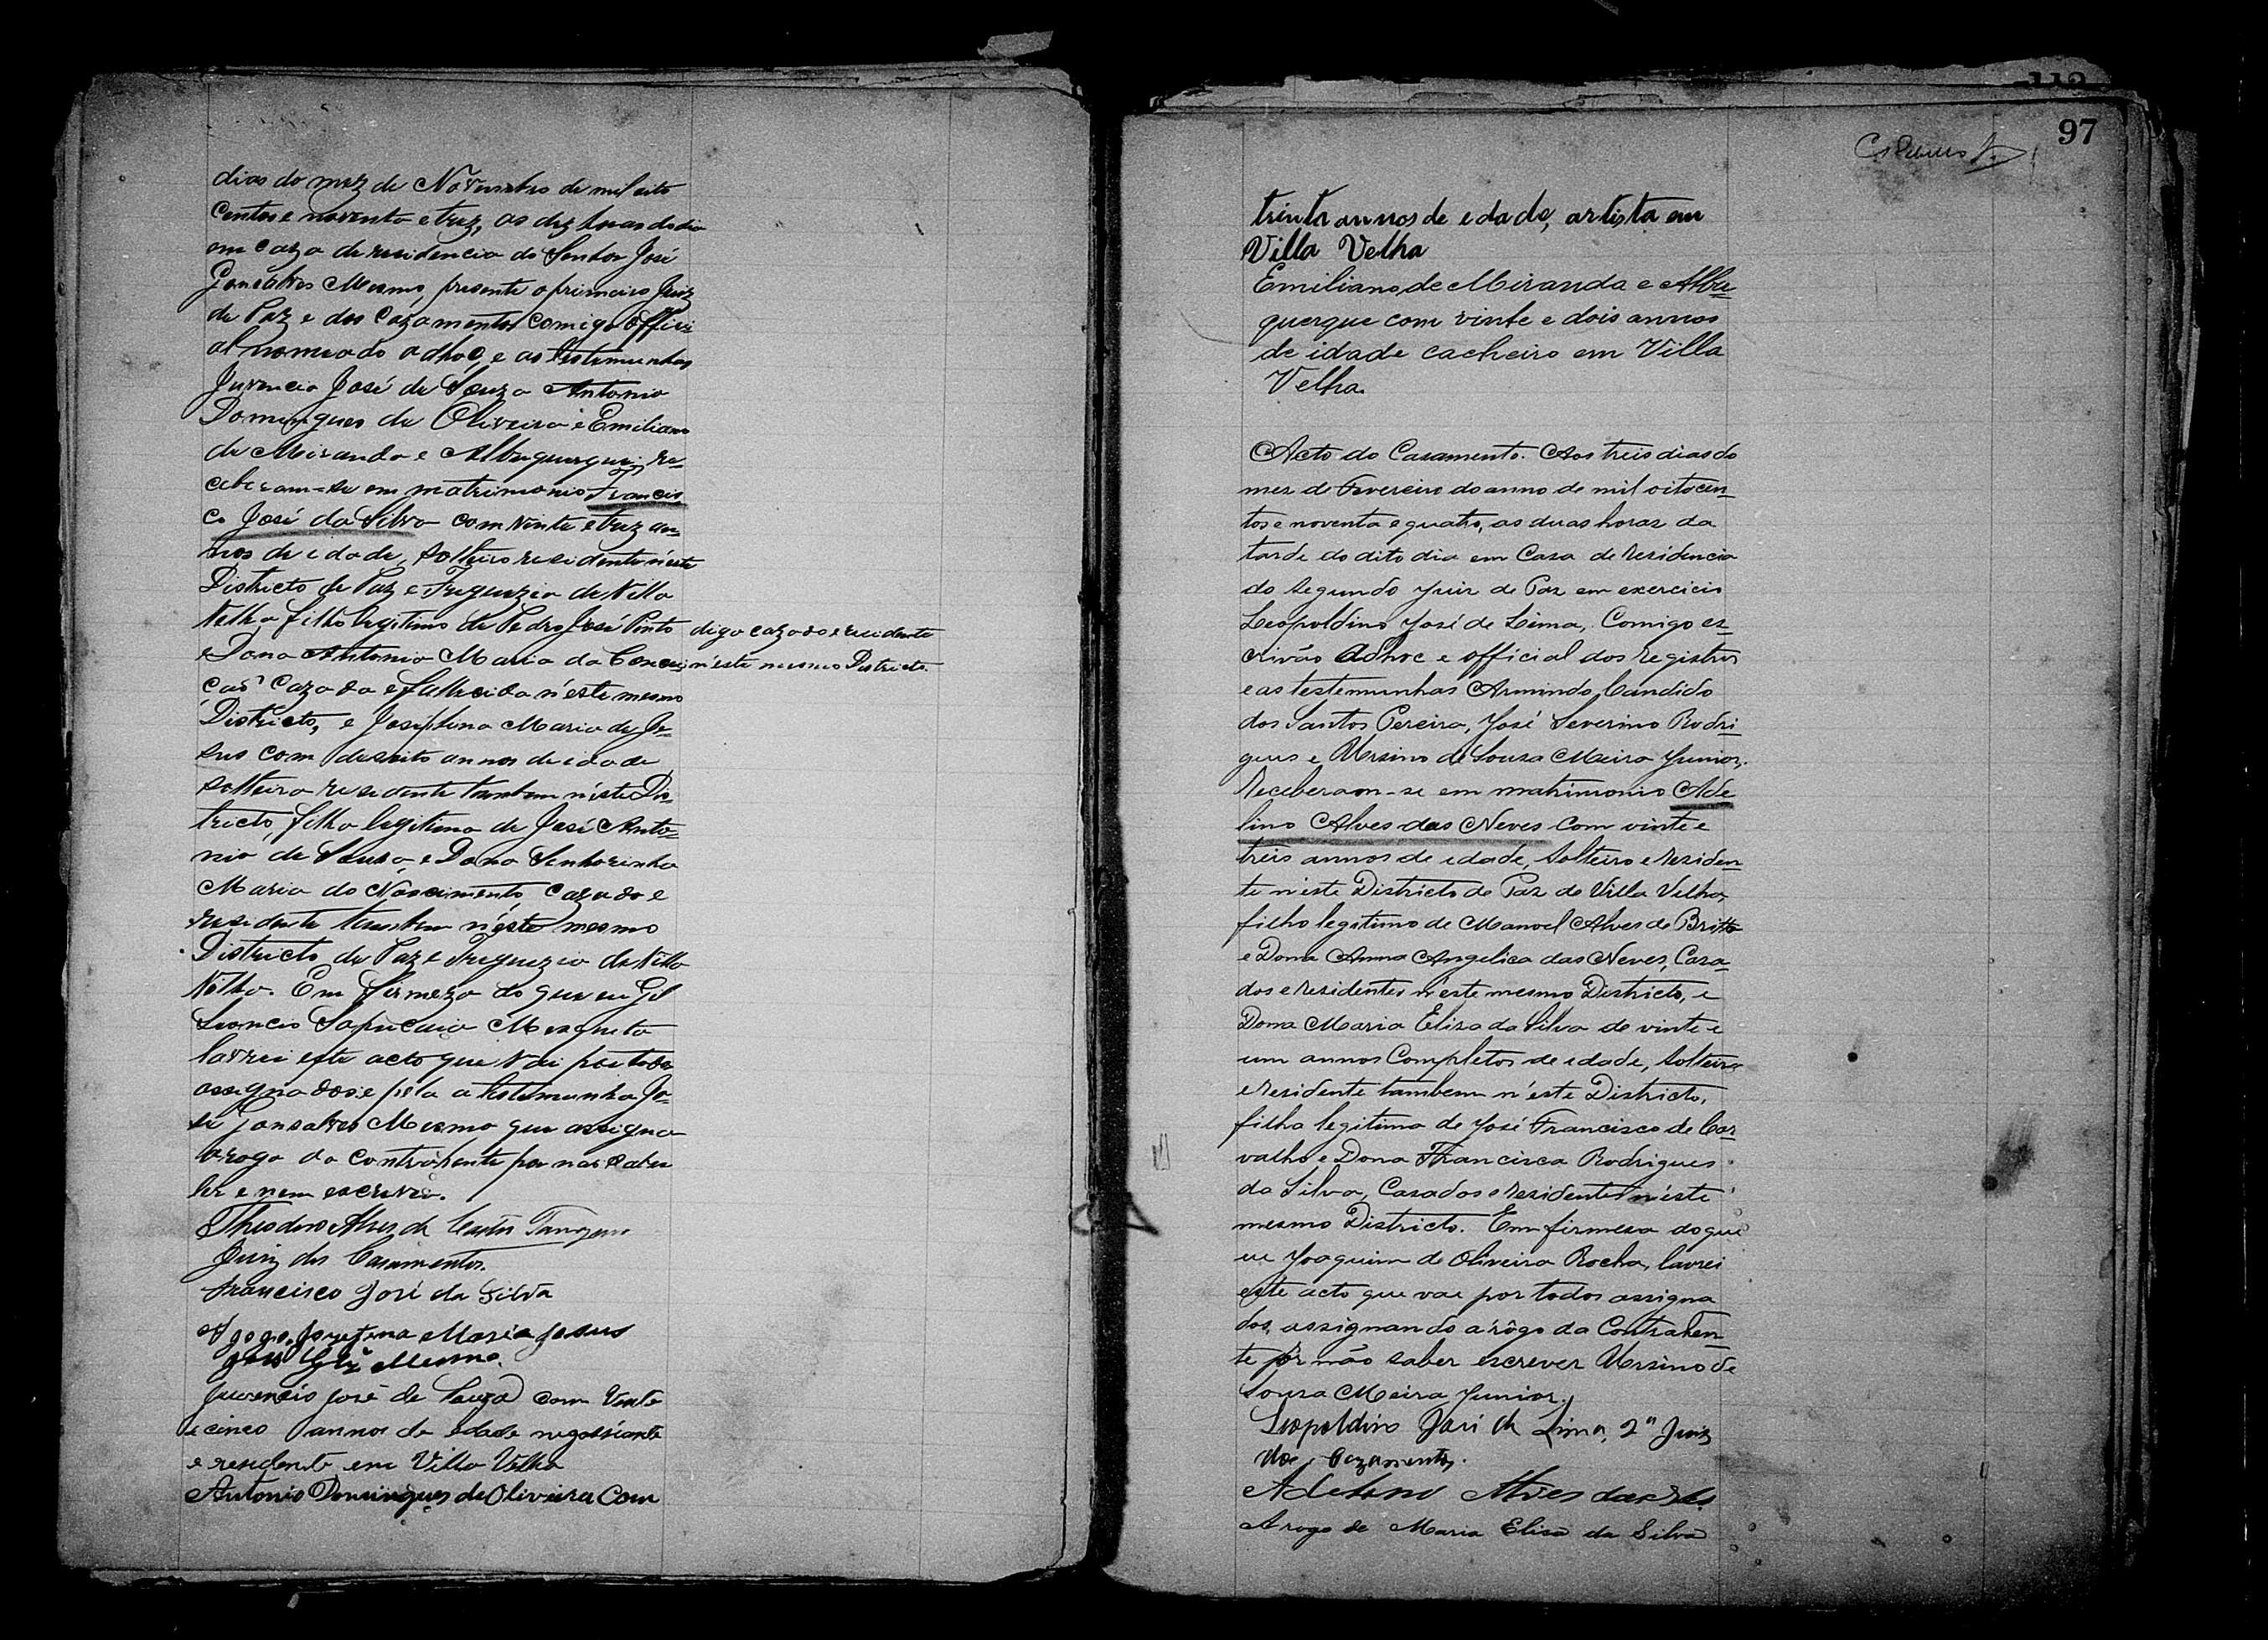 dias do mez de Novembro de mil oito
centos e noventa e trez, as dez horas do dia
em caza de residencia do Senhor José
Gonsalves Mesmo, presente o primeiro Juiz
de Paz e dos Cazamentos comigo offici
al nomeado adhoc, e as testemunhas
Juvencio José de Souza Antonio
Domingues de Oliveira e Emiliano
de Miranda e Albuquerque, re-
ceberam-se em matrimonio Francis
co José da Silva com vinte e trez an-
nos de idade, solteiro residente n'este
Districto de Paz e Freguezia de Villa
Velha filho legitimo de Pedro José Pinto digo cazado e residente
e Dona Antonia Maria da Concei n'este mesmo Districto
caõ cazada e fallecida n'este mesmo
Districto, e Josephina Maria de Je-
sus com desoito annos de idade
solteira residente tambem n'este Dis-
tricto, filha legitima de José Anto-
nio de Souza e Dona Senhorinha
Maria do Nascimento, cazado e
residente tambem n'este mesmo
Districto de Paz e Freguezia de Villa
Velha. Em firmeza do que eu Gil
Leoncio Sapucaia Mesquita
lavrei este acto que vai por todos
assignados e pela a testemunha Jo-
sé Gonsalves Mesmo que assigna
arogo da contrahente por naõ saber
ler e nem escrever.
Theodoro Alves de Castro Tanajura
Juiz dos Casamentos.
Francisco José da Silva
A rogo, Josefina Maria Jesus
José Glz Mesmo.
Juvencio José de Souza com Vinte
e cinco annos de edade negossiante
e residente em Villa Velha
Antonio Domingues de Oliveira com
112
97
trinta annos de edade, artista em
Villa Velha
Emiliano de Miranda e Albu-
querque com vinte e dois annos
de idade cacheiro em Villa
Velha.
Acto do Casamento. Aos treis dias do
mez de Fevereiro do anno de mil oitocen-
tos e noventa e quatro, as duas horas da
tarde do dito dia em Casa de residencia
do segundo Juiz de Paz em exercicio
Leopoldino José de Lima, Comigo es-
crivão Adhoc e official dos registros
e as testemunhas Armindo Candido
dos Santos Pereira, José Severino Rodri-
gues e Ursino de Sousa Meira Junior.
Receberam-se em matrimonio Ade
lino Alves das Neves com vinte e
treis annos de edade, solteiro e residen-
te n'este Districto de Paz de Villa Velha,
filho legitimo de Manoel Alves de Britto
e Dona Anna Angelica das Neves, Casa-
dos e residentes n'este mesmo Districto, e
Dona Maria Elisa da Silva de vinte e
um annos Completos de edade, solteira
e residente tambem n'este Districto,
filha legitima de José Francisco de Car-
valho e Dona Francisca Rodrigues
da Silva, Casados e residentes n'este
mesmo Districto. Em firmesa do que
eu Joaquim de Oliveira Rocha, lavrei
este acto que vae por todos assigna
dos, assignando a rôgo da Contrahen-
te por não saber escrever Ursino de
Sousa Meira Junior.
Leopoldino José de Lima, 2º Juiz
dos Cazamentos.
Adelino Alves das Neves
A rogo de Maria Elisa da Silva